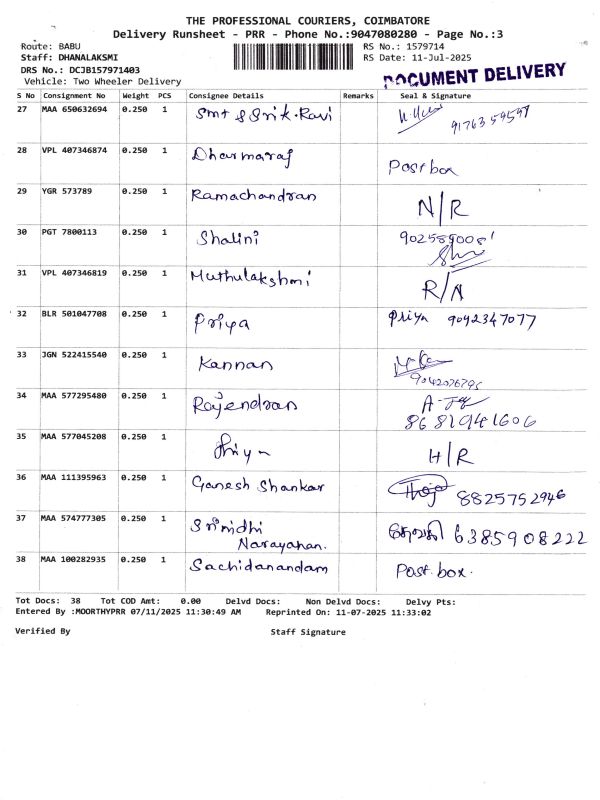 THE PROFESSIONAL COURIERS, COIMBATORE
Delivery Runsheet - PRR - Phone No.:9047080280 - Page No.:3
Route: BABU RS No.: 1579714
Staff: DHANALAKSMI RS Date: 11-Jul-2025
DRS No.: DCJB157971403
Vehicle: Two Wheeler Delivery
DOCUMENT DELIVERY
S No Consignment No Weight PCS Consignee Details Remarks Seal & Signature
27 MAA 650632694 0.250 1 Smt & Sri K. Ravi
28 VPL 407346874 0.250 1 Dharmaraj Post box
29 YGR 573789 0.250 1 Ramachandran N/R
30 PGT 7800113 0.250 1 Shalini
31 VPL 407346819 0.250 1 Muthulakshmi R/A
32 BLR 501047708 0.250 1 Priya Priya 9042347077
33 JGN 522415540 0.250 1 Kannan
34 MAA 577295480 0.250 1 Rajendran
8681941606
35 MAA 577045208 0.250 1 Priya H/R
36 MAA 111395963 0.250 1 Ganesh Shankar 8825752946
37 MAA 574777305 0.250 1 Srinidhi
Narayanan. 6385908222
38 MAA 100282935 0.250 1 Sachidanandam Post. box.
Tot Docs: 38 Tot COD Amt: 0.00 Delvd Docs: Non Delvd Docs: Delvy Pts:
Entered By :MOORTHYPRR 07/11/2025 11:30:49 AM Reprinted On: 11-07-2025 11:33:02
Verified By Staff Signature